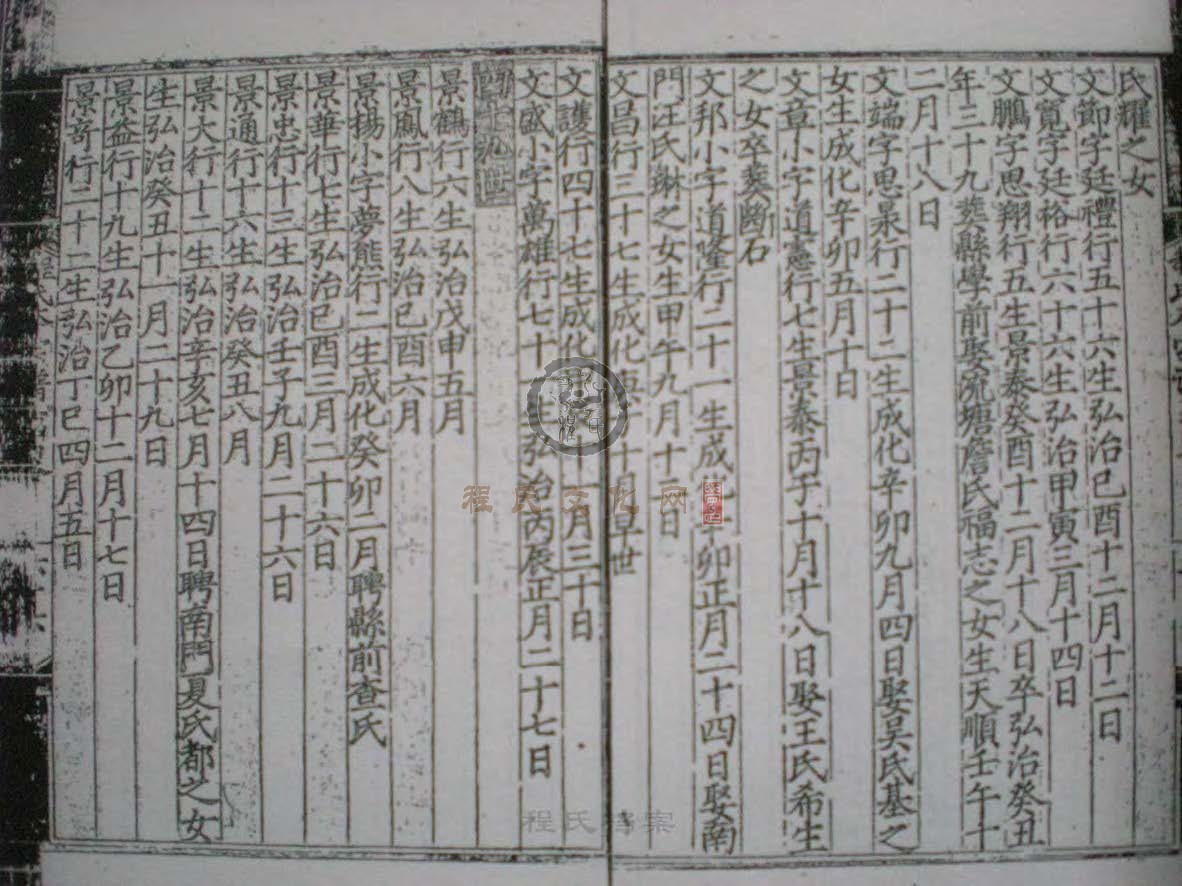 氏耀之女
文節字廷禮行五十六生弘治己酉十二月十二日
文寬字廷裕行六十六生弘治甲寅三月十四日
文鵬字思翔行五生景泰癸酉十二月十八日卒弘治癸丑
年三十九葬縣學前娶流塘詹氏福志之女生天順壬午十
二月十八日
文端字思杲行二十二生成化辛卯九月四日娶吴氏基之
女生成化辛卯五月十日
文章小字道憲行七生景泰丙子十月十八日娶王氏希生
之女卒葬斷石
文邦小字道隆行二十一生成化辛卯正月二十四日娶南
門汪氏琳之女生甲午九月十二日
文昌行三十七生成化庚子十月早世
文護行四十七生成化十一月三十日
文盛小字萬雄行七十弘治丙辰正月二十七日
景鶴行六生弘治戊申五月
景鳳行八生弘治己酉六月
景揚小字夢熊行二生成化癸卯二月聘縣前查氏
景華行七生弘治己酉二月二十六日
景忠行十三生弘治壬子九月二十六日
景通行十六生弘治癸丑八月
景大行十二生弘治辛亥七月十四日聘南門夏氏都之女
生弘治癸丑十一月二十九日
景益行十九生弘治乙卯十二月十七日
景奇行二十二生弘治丁巳四月五日
程氏文化网
程氏档案